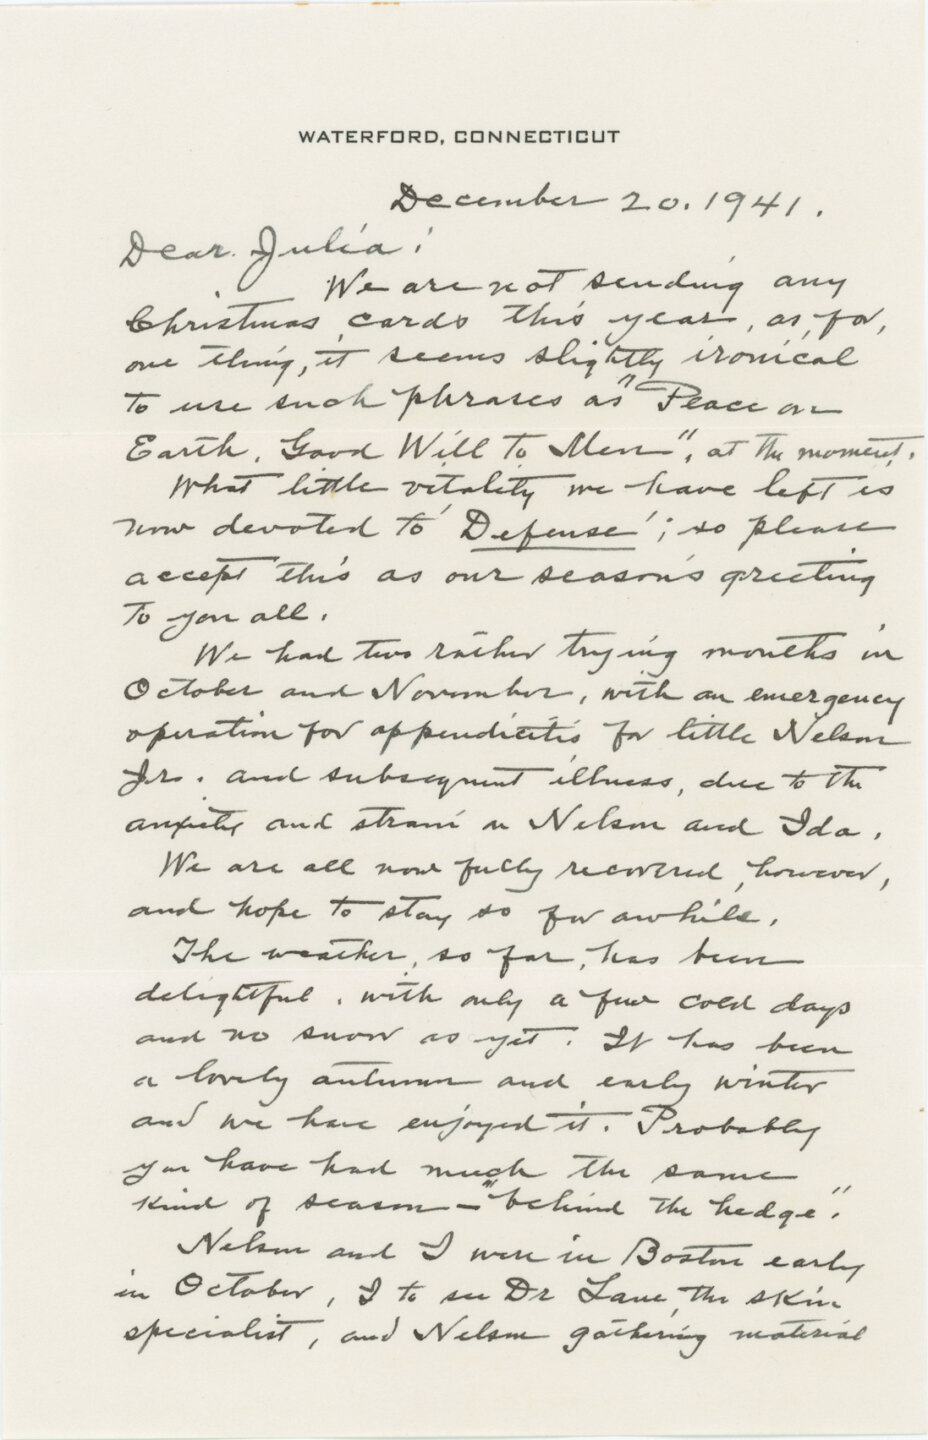 WATERFORD, CONNECTICUT
December 20. 1941.
Dear Julia:
We are not sending any
Christmas cards this year, as, for,
one thing, it seems slightly ironical
to use such phrases as "Peace on
Earth, Good Will to Men", at the moment.
What little vitality we have left is
now devoted to 'Defense'; so please
accept this as our season's greeting
to you all.
We had two rather trying months in
October and November, with an emergency
operation for appendicitis for little Nelson
Jr. and subsequent illness, due to the
anxiety and strain on Nelson and Ida.
We are all now fully recovered, however,
and hope to stay so for awhile.
The weather, so far, has been
delightful, with only a few cold days
and no snow as yet. It has been
a lovely autumn and early winter
and we have enjoyed it. Probably
you have had much the same
kind of season - "behind the hedge".
Nelson and I were in Boston early
in October, I to see Dr Lane, the skin
specialist, and Nelson gathering material